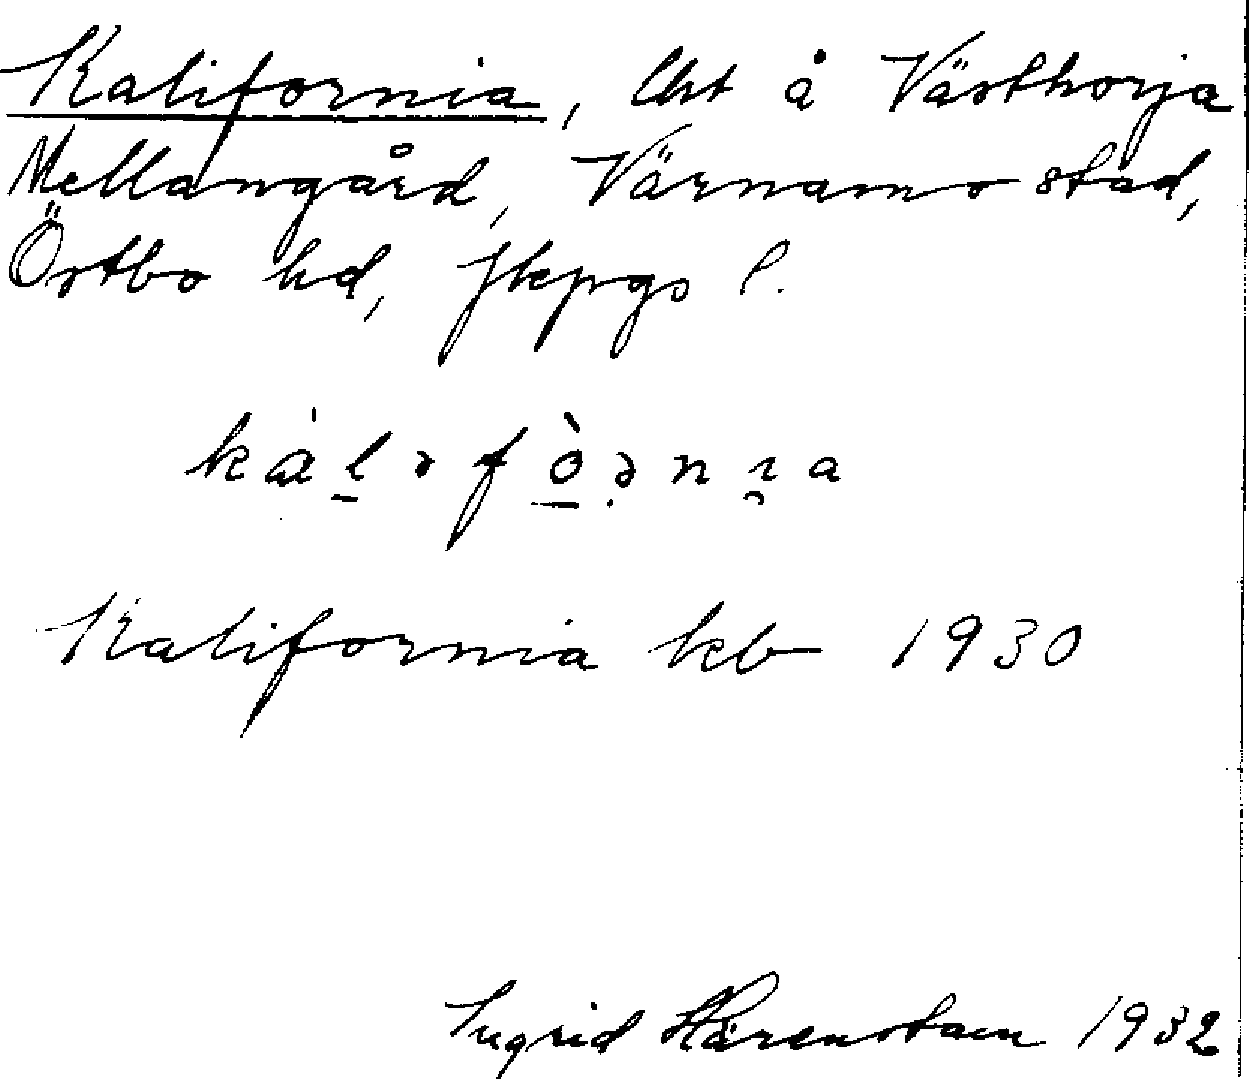 Kalifornia, lht å Västhorja
Mellangård, Värnamo stad,
Östbo hd, Jkpgs l.
kalifornia kb 1930
Ingrid Härenstam 1932